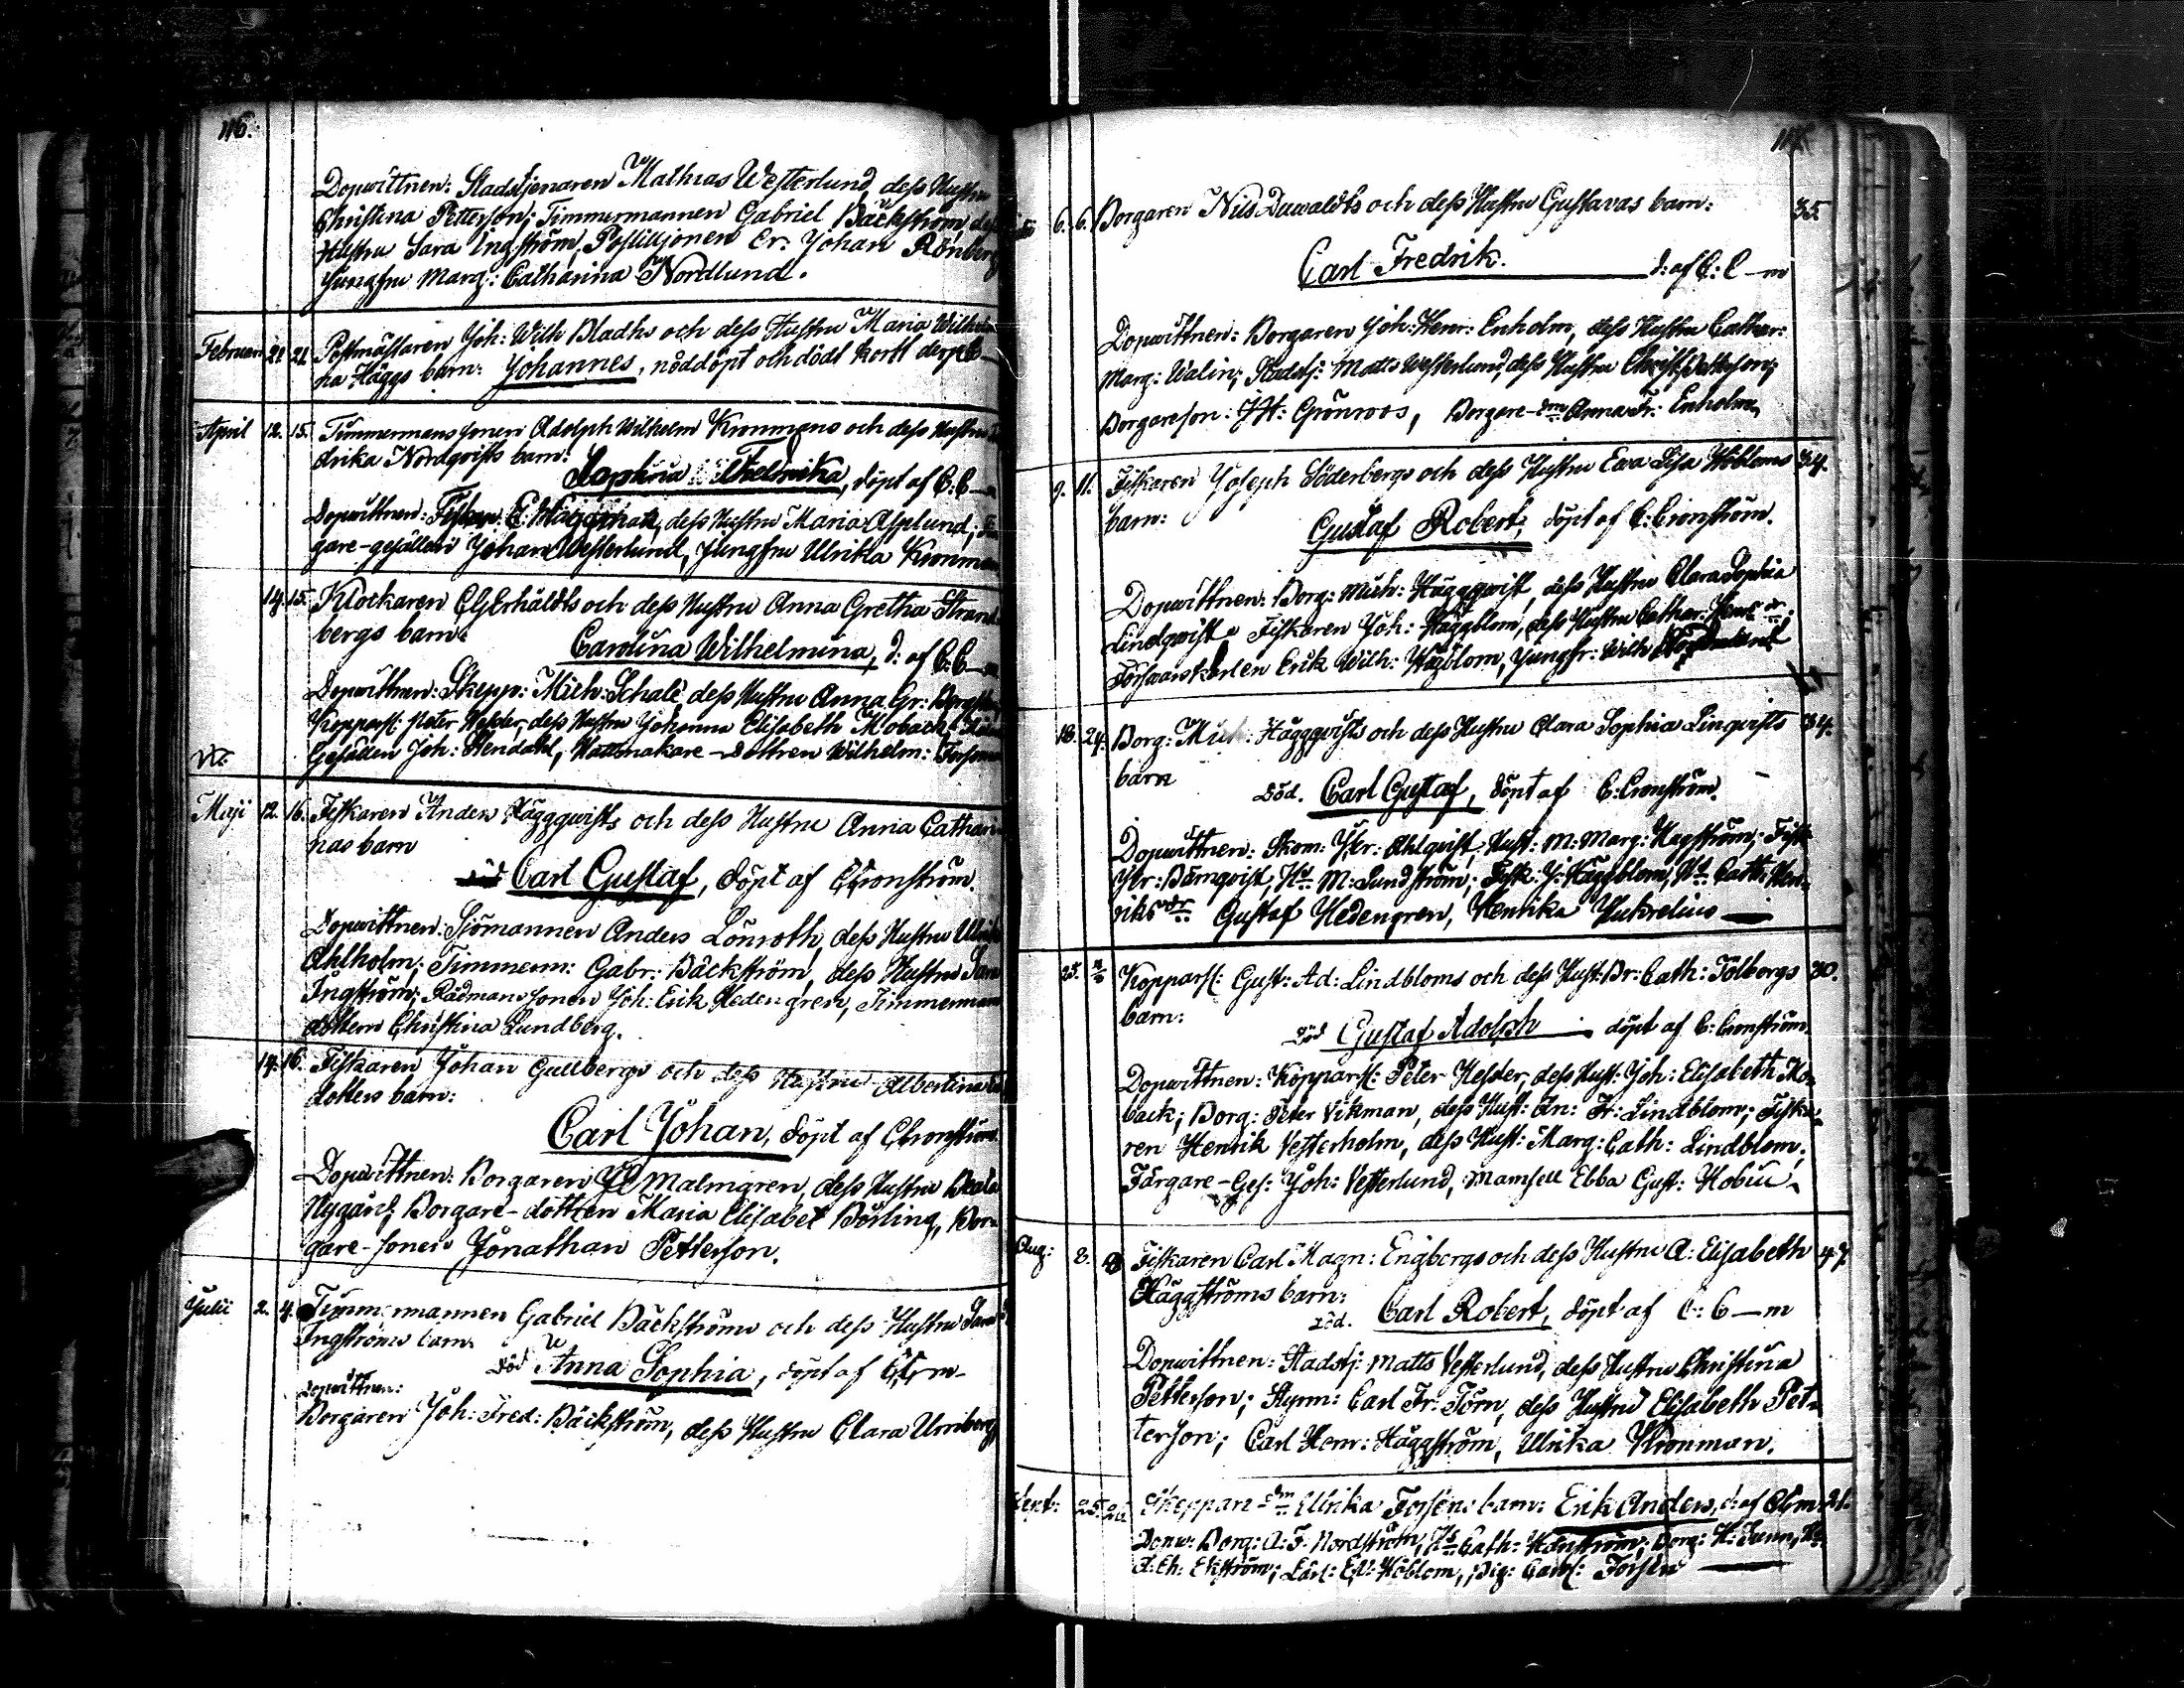 116.
Dopwittnen: Stadstjenaren Mathias Westerlund, dess Hustru
Christina Petterson; Timmermannen Gabriel Bäckström, dess
Hustru Sara Ingström, Postilljonen Er: Johan Rönberg
Jungfru Marg: Catharina Nordlund.
Februari 21. 21. Postmästaren Joh: Wilh Bladhs och dess Hustru Maria Wilhelmi-
na Häggs barn: Johannes, nöddöpt och dödt kort derpå
April 12. 15. Timmermanssonen Adolph Wilhelm Kronmans och dess Hustru
drika Nordqvists barn:
Sophia Wilhelmika, döpt af C: C—m
Dopwittnen: Fiskar: E: Häggblad, dess Hustru Maria Asplund;
gare-gesällen Johan Westerlund, Jungfru Ulrika Kronman
14. 15. Klockaren C G Erhaldts och dess Hustru Anna Gretha Strand-
bergs barn:
Carolina Wilhelmina, d: af C: C—m
Dopwittnen: Skepp: Mich: Schale, dess Hustru Anna Gr:
Kopparsl: Peter Hesler, dess Hustru Johanna Elisabeth Moback;
Gesällen Joh: Stendahl, Hattmakare-dottren Wilhelm: Forsman
Maji 12. 16. Fiskaren Anders Häggqwists och dess Hustru Anna Cathari-
nas barn
död Carl Gustaf, döpt af C: Cronström.
Dopwittnen: Sjömannen Anders Lönroth, dess Hustru Ulrika
Ahlholm; Timmerm: Gabr: Bäckström, dess Hustru Sara
Ingström; Rådmanssonen Joh: Erik Hedengren, Timmermans
dottern Christina Lundberg.
14. 16. Fiskaren Johan Gullbergs och dess Hustru Albertina
dotters barn:
Carl Johan, döpt af C: Cronström.
Dopwittnen: Borgaren Malmgren, dess Hustru Beata
Nygård; Borgare-dottren Maria Elisabet Börling, Bor-
gare-sonen Jonathan Petterson.
Julii 2. 4. Timmermannen Gabriel Bäckströms och dess Hustru Sara
Ingströms barn
död Anna Sophia, döpt af C: C—m
Dopwittnen:
Borgaren Joh: Fred: Bäckström, dess Hustru Clara Urnberg
117.
6. 6. Borgaren Nils Duwaldts och dess Hustru Gustavas barn: 35.
Carl Fredrik. d: af C: C—m
Dopwittnen: Borgaren Joh: Henr: Enholm, dess Hustru Cathar:
Marg: Walin; Stadstj: Matts Westerlund, dess Hustru Christ: Petterson;
Borgareson: J H: Grönroos, Borgare-dr Anna Fr: Enholm
9. 11. Fiskaren Joseph Söderbergs och dess Hustru Ewa Lisa Höbloms 34.
barn:
Gustaf Robert, döpt af C: Cronström.
Dopwittnen: Borg: Mich: Häggqwist, dess Hustru Clara Sophia
Lindqwist; Fiskaren Joh: Häggblom, dess Hustru Cathar: Henr: dr;
Förswarskarlen Erik Wilh: Hägblom, Jungfr: Wilh
18. 24. Borg: Mich: Häggqvists och dess Hustru Clara Sophia Linqvists 34.
barn
död. Carl Gustaf, döpt af C: Cronström.
Dopwittnen: Skom: Ahlqvist, Hust: M: Marg: Hagström; Fisk
Damqvist, Hu M: Lundström; Fisk: J: Häggblom, Hu Cath: Hen-
riks dr Gustaf Hedengren, Henrika Hukrelius
25. Kopparsl: Gust: Ad: Lindbloms och dess Hust: Br: Cath: Tolbergs 30.
barn:
död Gustaf Adolph döpt af C: Cronström.
Dopwittnen: Kopparsl: Peter Hesler, dess Hust: Joh: Elisabeth Mo-
back; Borg: Peter Vikman, dess Hust: An: Fr: Lindblom; Fiska-
ren Henrik Vesterholm, dess Hust: Marg: Cath: Lindblom,
Färgare-Ges: Joh: Vesterlund, Mamsell Ebba Gust: Hobin
Aug: 8. Fiskaren Carl Magn: Engbergs och dess Hustru A: Elisabeth 47.
Häggströms barn:
död. Carl Robert, döpt af C: C—m
Dopwittnen: Stadstj: Matts Vesterlund, dess Hustru Christina
Petterson; Styrm: Carl Fr: Törn, dess Hustru Elisabeth Pet-
terson; Carl Henr: Häggström, Ulrika Kronman.
Sept: 25. 26. Skeppar-dr Ulrika Forséns barn: Erik Anders, d: af C—m 21.
Dopw: Borg: A: F: Nordström, Hu Cath: Hänström; Borg: H:
A: Ch: Ekström; Lärl: Ed: Höblom, Pig: Carol: Forsén